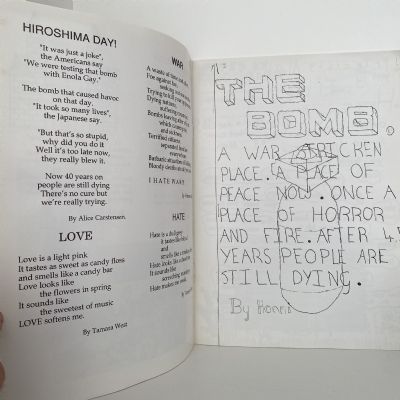 HIROSHIMA DAY!
"It was just a joke",
the Americans say
"We were testing that bomb
with Enola Gay."
The bomb that caused havoc
on that day.
"It took so many lives",
the Japanese say.
"But that's so stupid,
why did you do it
Well it's too late now,
they really blew it.
Now 40 years on
people are still dying
There's no cure but
we're really trying.
By Alice Carstensen.
LOVE
Love is a light pink
It tastes as sweet as candy floss
and smells like a candy bar
Love looks like
the flowers in spring
It sounds like
the sweetest of music
LOVE softens me.
By Tamara West
WAR
A waste of time and
Foe against foe,
Trying to kill your
Dying natures,
suffering
Bombs leaving
and sickness.
Terrified
separated families
everywhere
Barbaric
Bloody
I HATE WAR!!
HATE
Hate is a dull grey
It tastes like
and
smells like a
Hate looks like a
It sounds like
something
Hate makes me
THE
BOMB.
A WAR STRICKEN
PLACE. A PLACE OF
PEACE NOW. ONCE A
PLACE OF HORROR
AND FIRE. AFTER 45
YEARS PEOPLE ARE
STILL DYING.
By